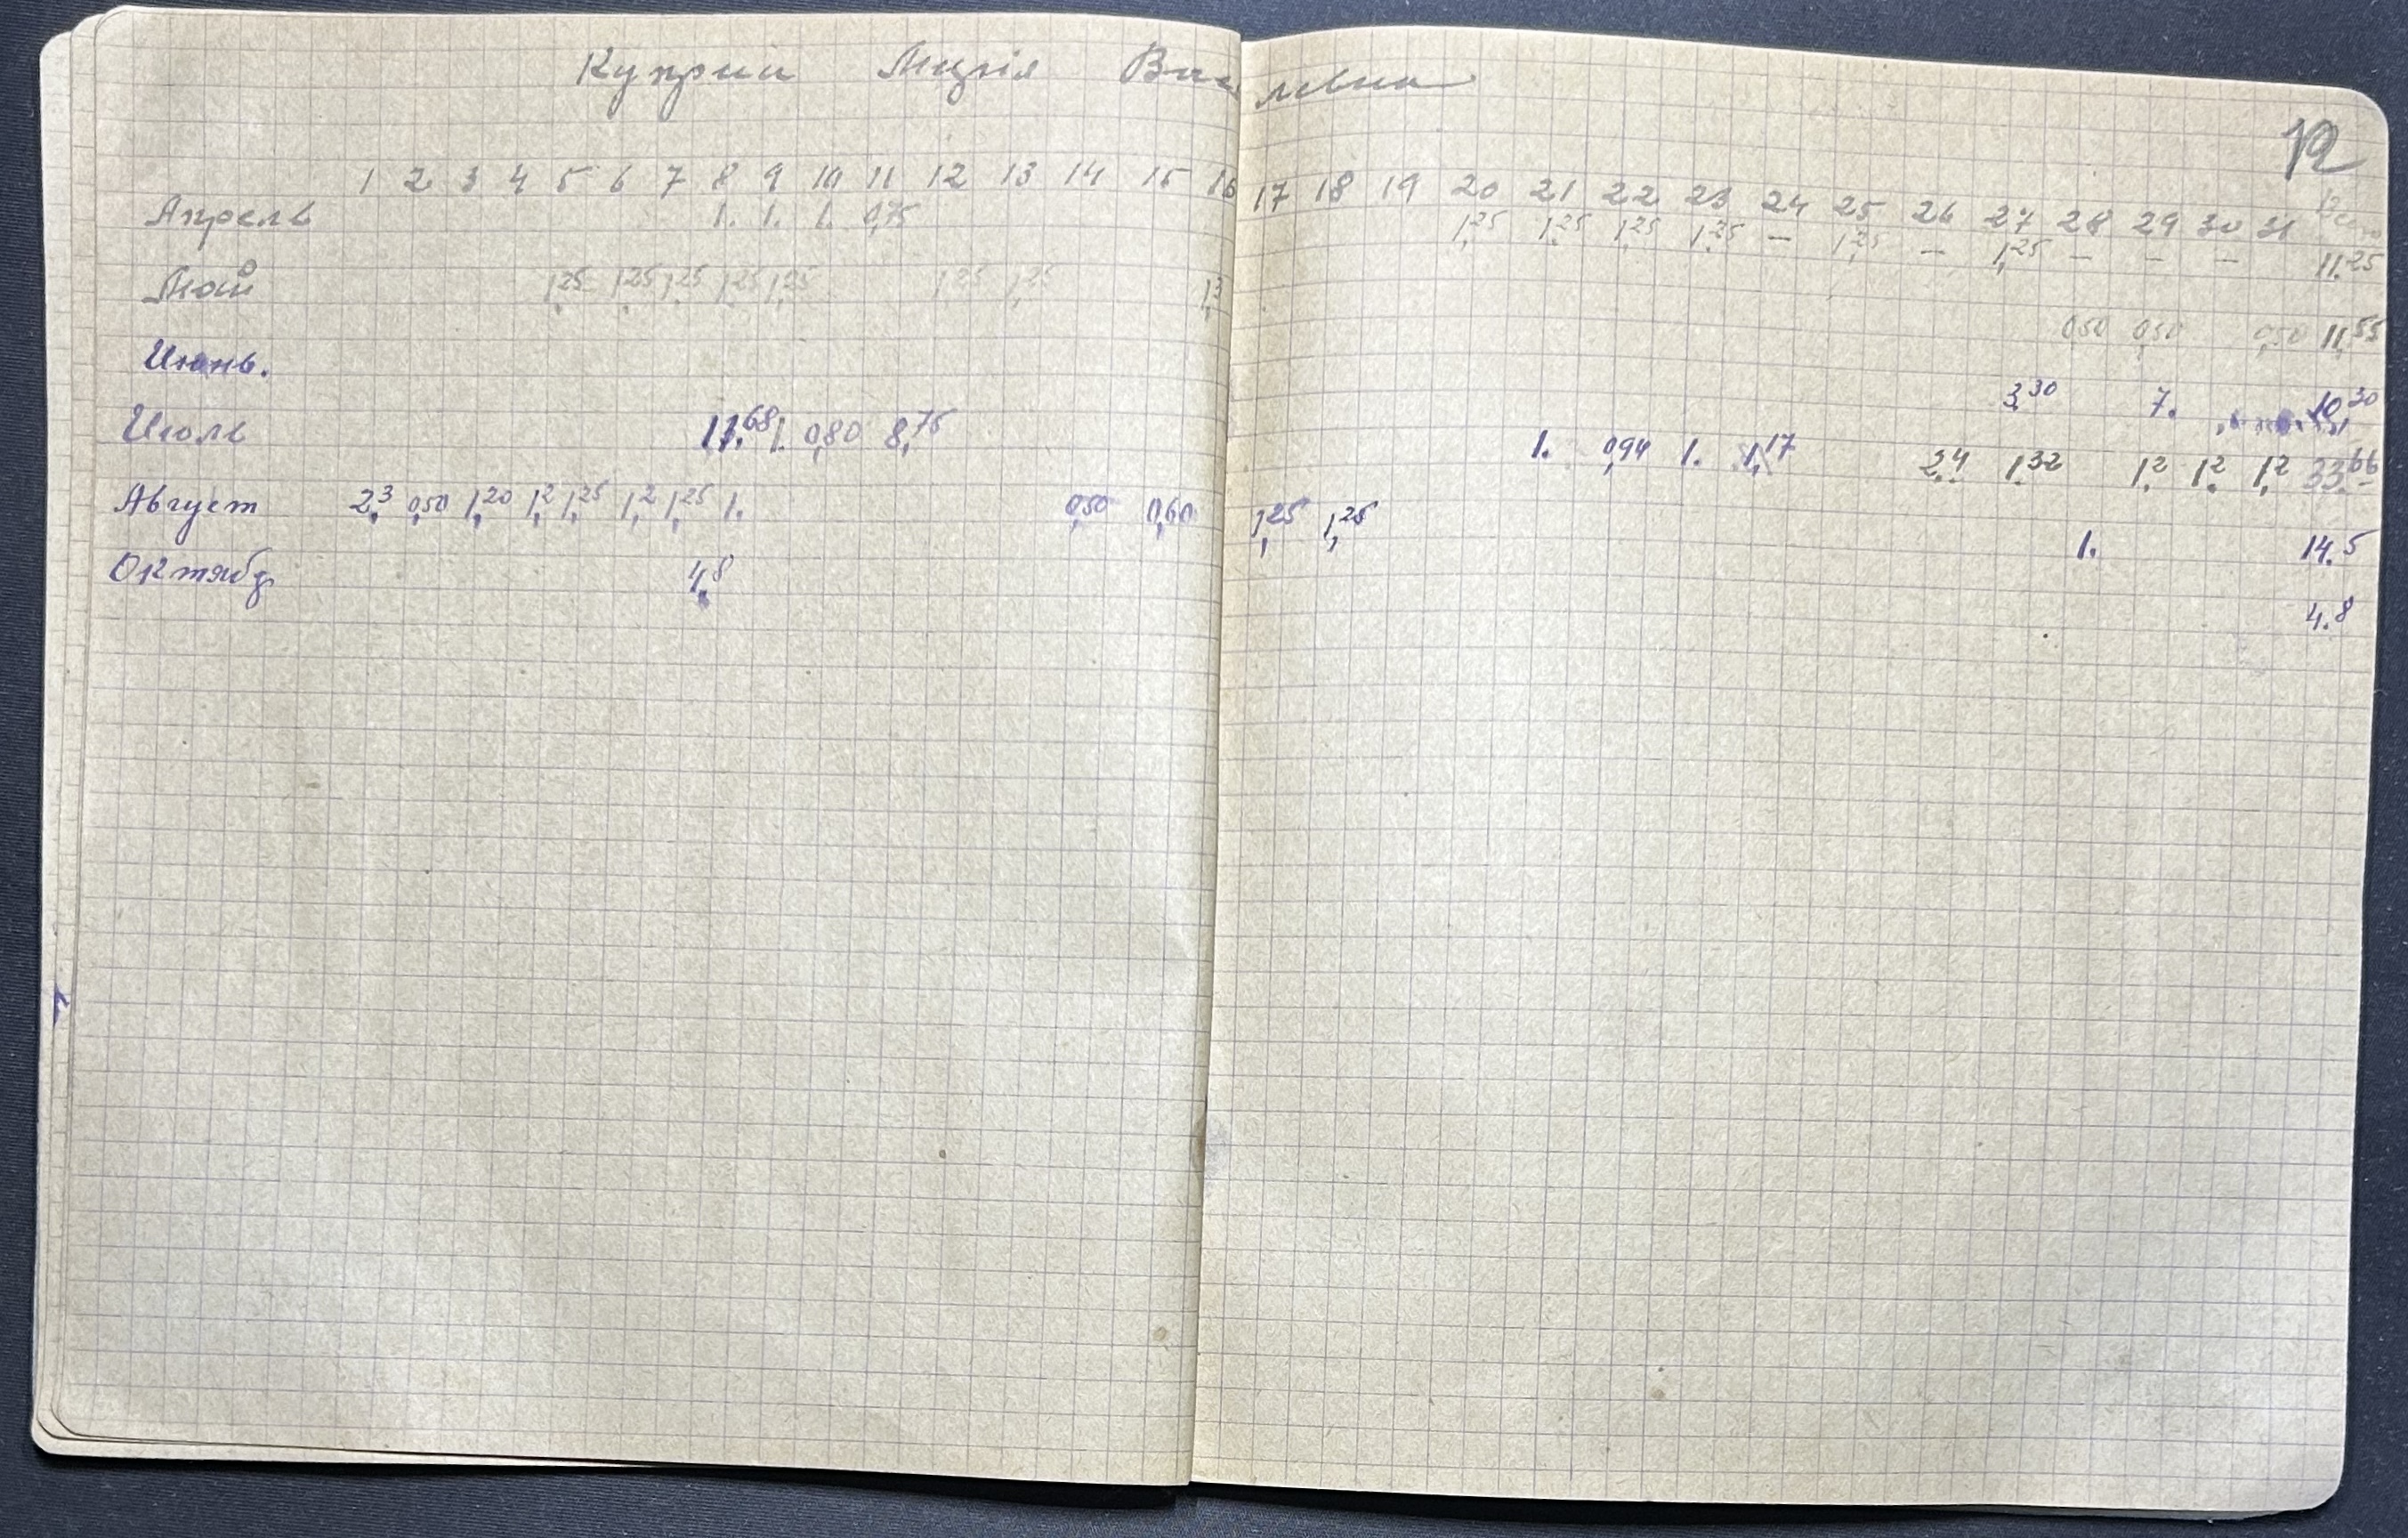 Куприн Мария Васильевна
12
1 2 3 4 5 6 7 8 9 10 11 12 13 14 15 16 17 18 19 20 21 22 23 24 25 26 27 28 29 30 31 Всего
Апрель 1. 1. 1. 0,75 1,25 1,25 1,25 1,25 — 1,25 — 1,25 — — — 11.25
Май 1,25 1,25 1,25 1,25 1,25 1,25 1,25 1,3 0,50 0,50 0,50 11,55
Июнь. 3,30 7. 10,30
Июль 11.68 1. 0,80 8,75 1. 0,94 1. 1,17 2,4 1,32 1,2 1,2 1,2 33,66
Август 2,3 0,50 1,20 1,2 1,25 1,2 1,25 1. 0,50 0,60 1,25 1,25 1. 14.5
Октябр 4,8 4.8